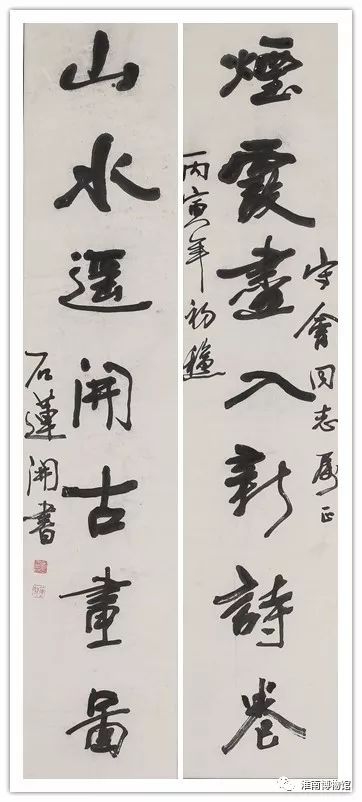 煙霞盡入新詩卷
守會同志屬正
丙寅年初穐
山水遥開古畫圖
石蓮開書
淮南博物馆